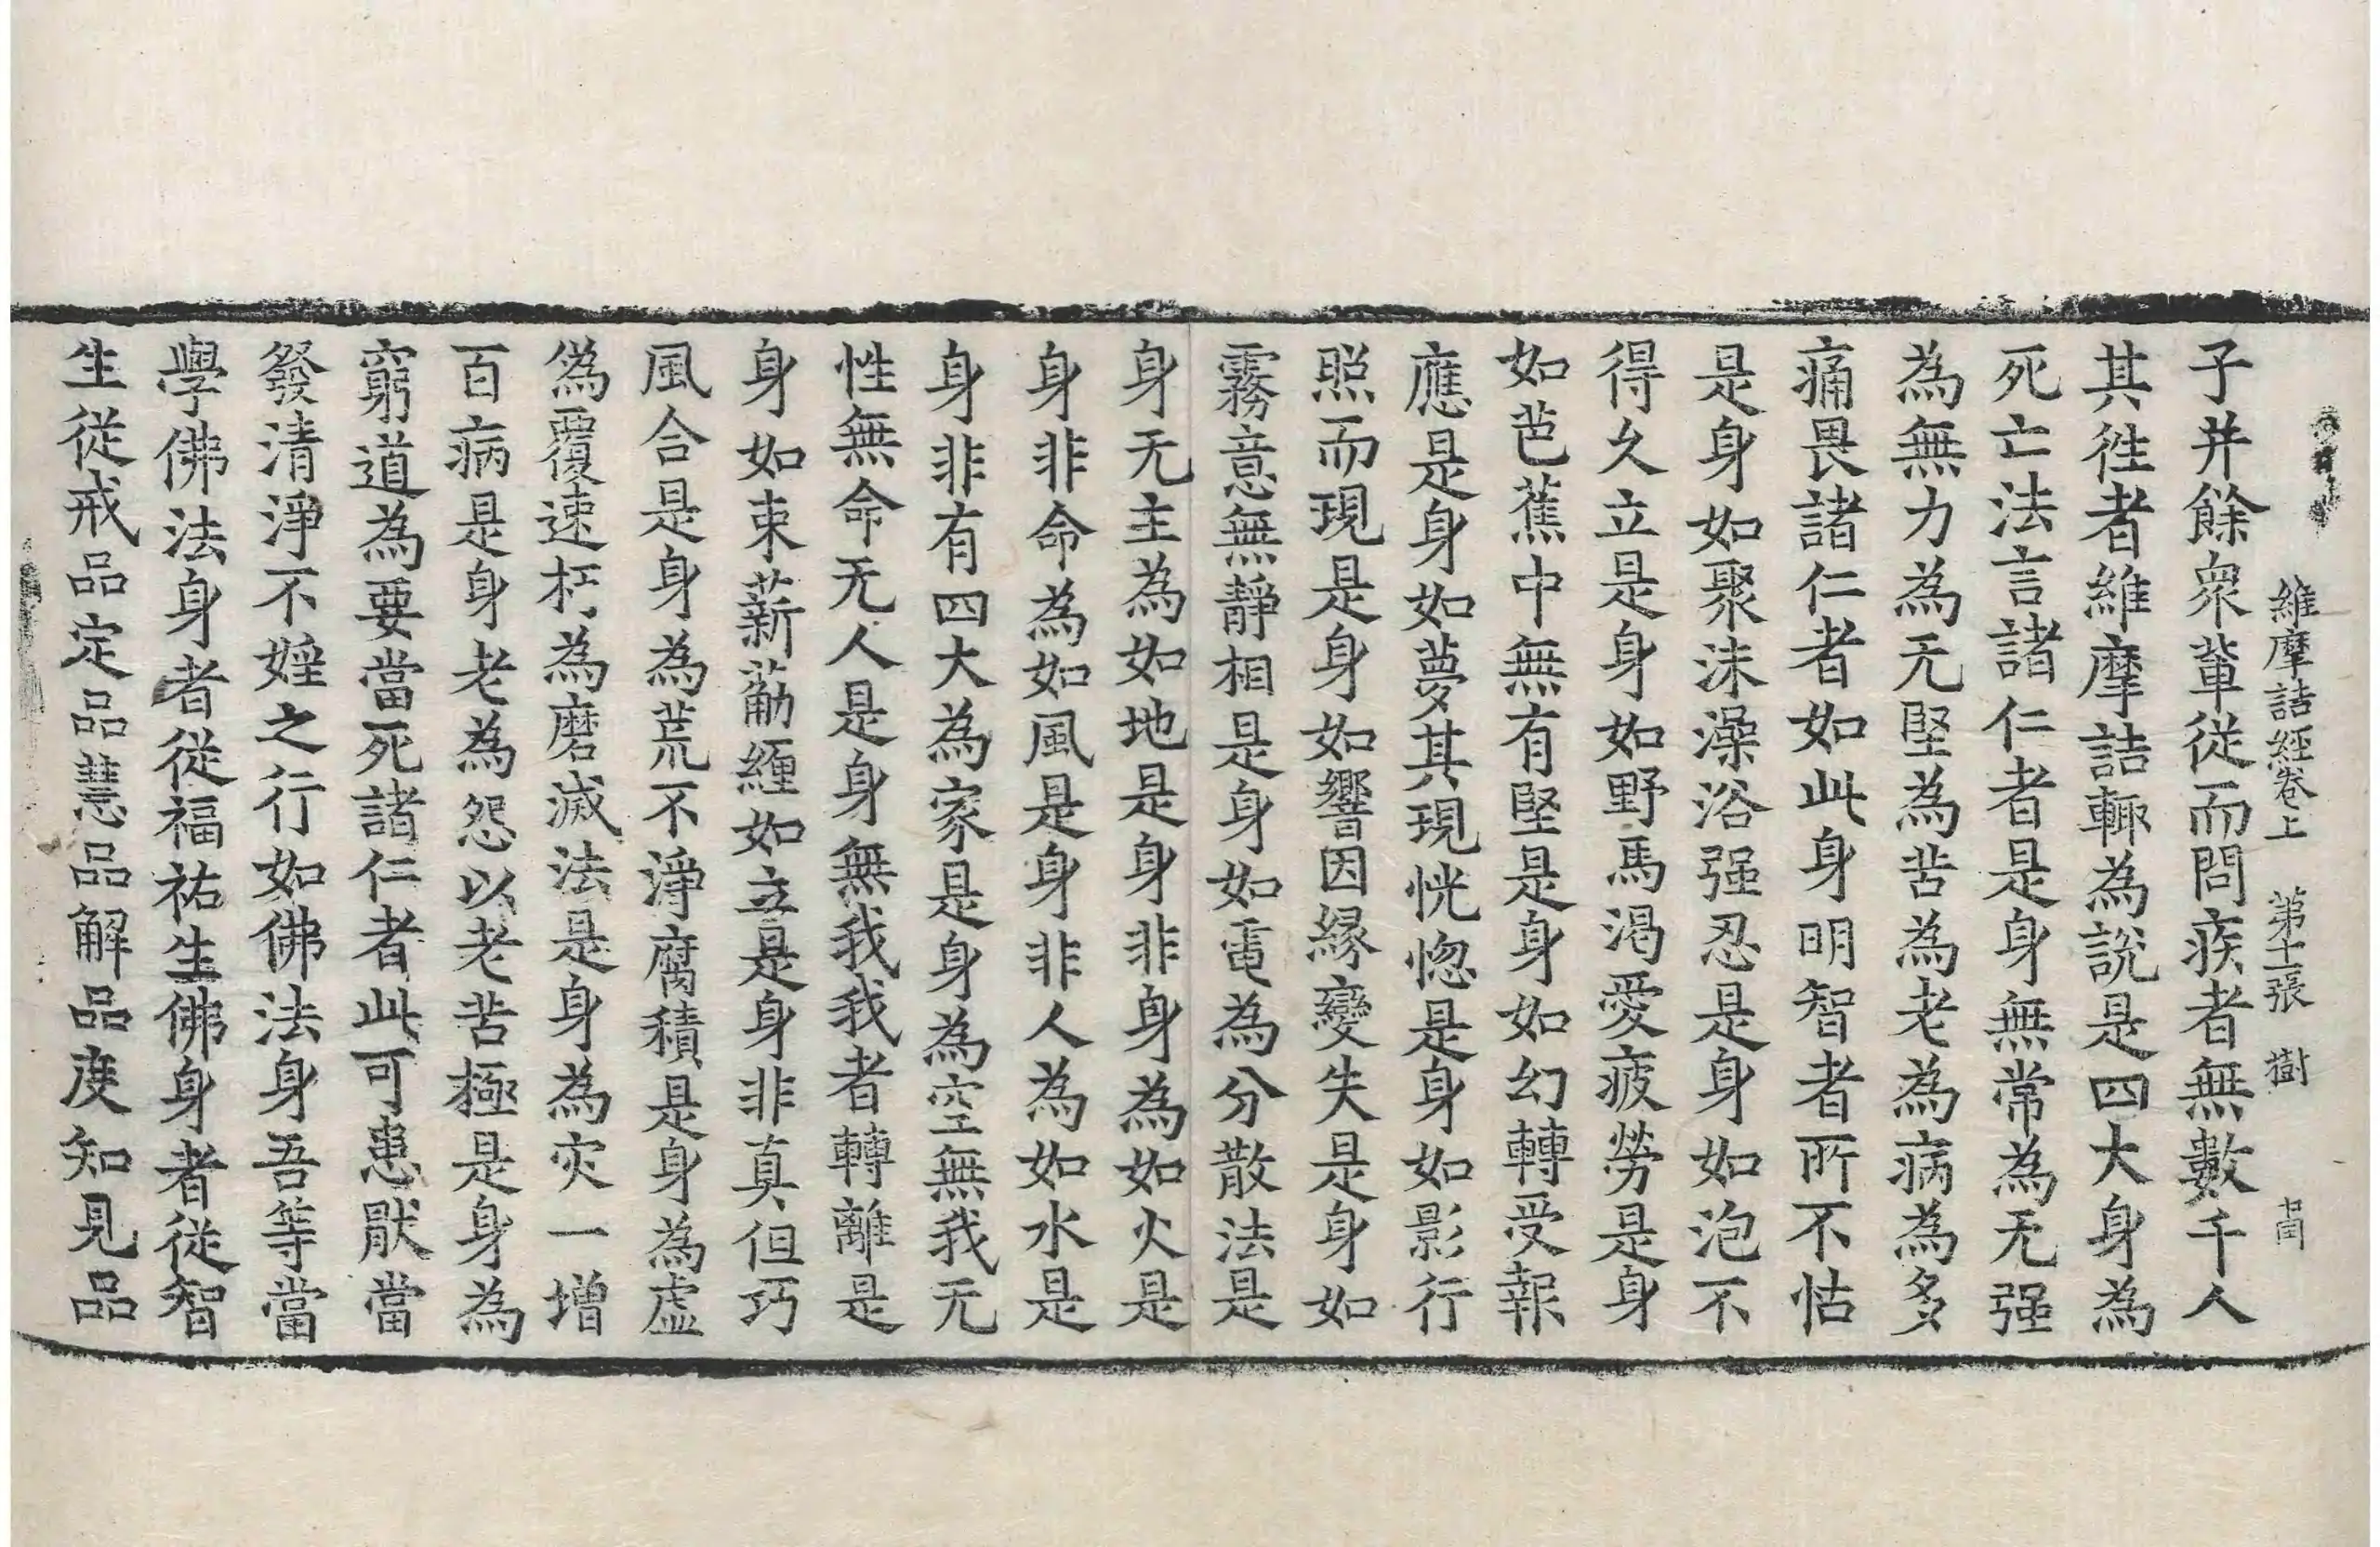 維摩詰経卷上 第十一張 樹
子并餘衆輩従而問疾者無數千人
其徃者維摩詰輙為說是四大身為
死亡法言諸仁者是身無常為无强
為無力為无堅為苦為老為病為多
痛畏諸仁者如此身明智者所不怙
是身如聚沫澡浴强忍是身如泡不
得久立是身如野馬渇愛疲勞是身
如芭蕉中無有堅是身如幻轉受報
應是身如夢其現恍惚是身如影行
照而現是身如響因縁變失是身如
霧意無靜相是身如電為分散法是
身无主為如地是身非身為如火是
身非命為如風是身非人為如水是
身非有四大為家是身為空無我无
性無命无人是身無我我者轉離是
身如束薪薊纏如立是身非真但巧
風合是身為荒不淨腐積是身為虛
偽覆速朽為磨滅法是身為灾一增
百病是身老為怨以老苦極是身為
窮道為要當死諸仁者此可患厭當
發清淨不婬之行如佛法身吾等當
學佛法身者従福祐生佛身者従智
生従戒品定品慧品解品度知見品